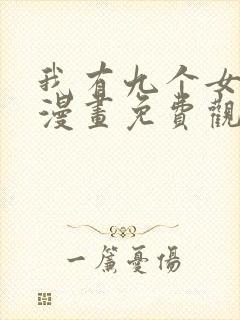 我有九个女
漫畫免費觀
一簾憂傷